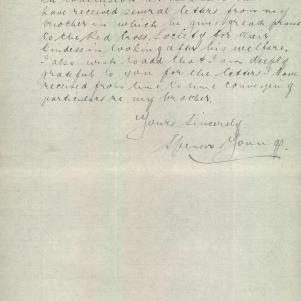 have received several letters from my
brother in which he gives great praise
to the Red Cross Society for their
kindness in looking after his welfare.
I also wish to add that I am deeply
grateful to you for the letters I have
received from time to time conveying
particulars re my brother.
Yours Sincerely
Young